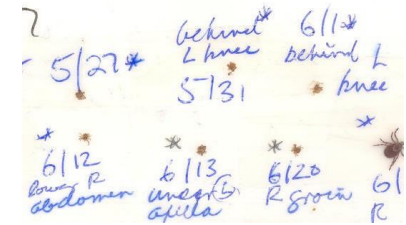 5/27*
behind*
L knee
5/31
6/1*
behind L
knee
*
6/12
lower R
abdomen
*
6/13
under L
axilla
*
6/20
R groin
*
6/
R